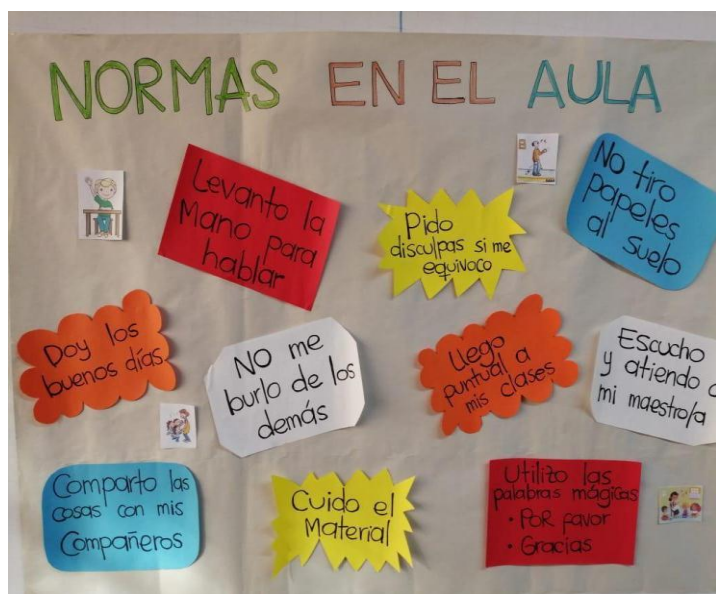 NORMAS EN EL AULA
Levanto la
Mano para
hablar
Pido
disculpas si me
equivoco
No tiro
papeles
al suelo
Doy los
buenos días
NO me
burlo de los
demás
Llego
puntual a
mis clases
Escucho
y atiendo a
mi maestro/a
Comparto las
cosas con mis
Compañeros
Cuido el
Material
Utilizo las
palabras mágicas
• POR favor
• Gracias